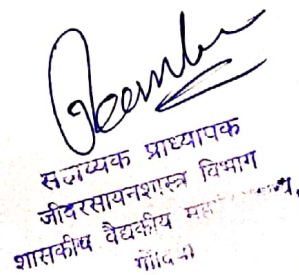 सहाय्यक प्राध्यापक
जीवरसायनशास्त्र विभाग
शासकीय वैद्यकीय
गोंदिया